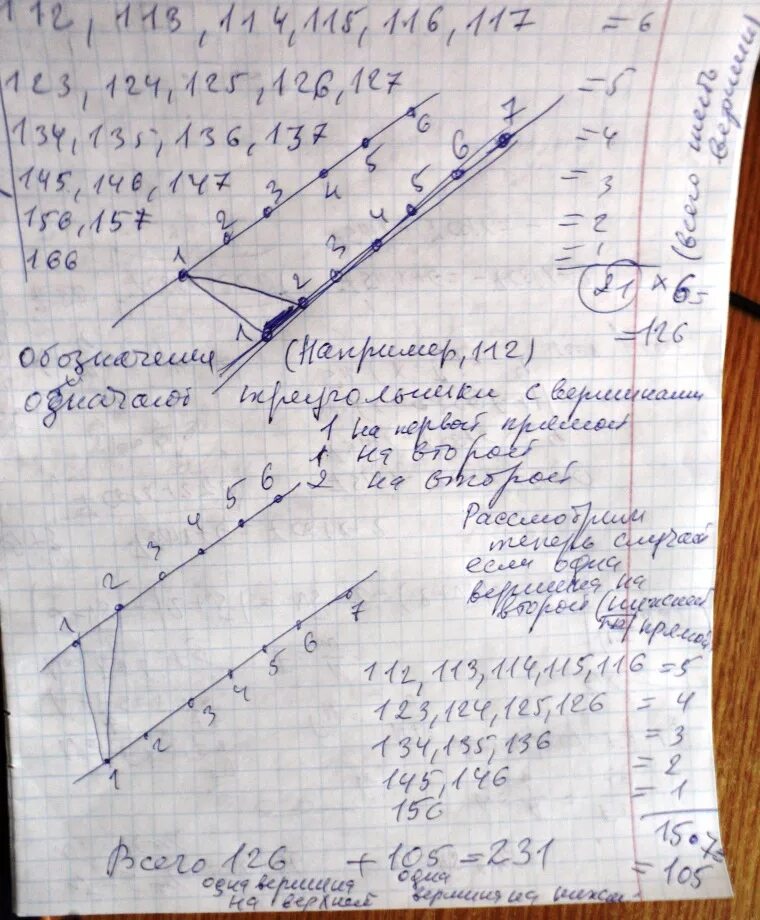 112, 113, 114, 115, 116, 117 = 6
123, 124, 125, 126, 127 = 5
134, 135, 136, 137 = 4
145, 146, 147 = 3
156, 157 = 2
166 = 1
(всего шесть вершин)
21 × 6 =
= 126
1 2 3 4 5 6
1 2 3 4 5 6 7
обозначения (Например, 112)
означают треугольники с вершинами
1 на первой прямой
1 на второй
2 на второй
1 2 3 4 5 6
1 2 3 4 5 6 7
Рассмотрим
теперь случай
если одна
вершина на
второй (нижней
прямой
112, 113, 114, 115, 116 = 5
123, 124, 125, 126 = 4
134, 135, 136 = 3
145, 146 = 2
156 = 1
15 · 7 =
= 105
Всего 126 + 105 = 231
одна вершина на верхней
одна вершина на